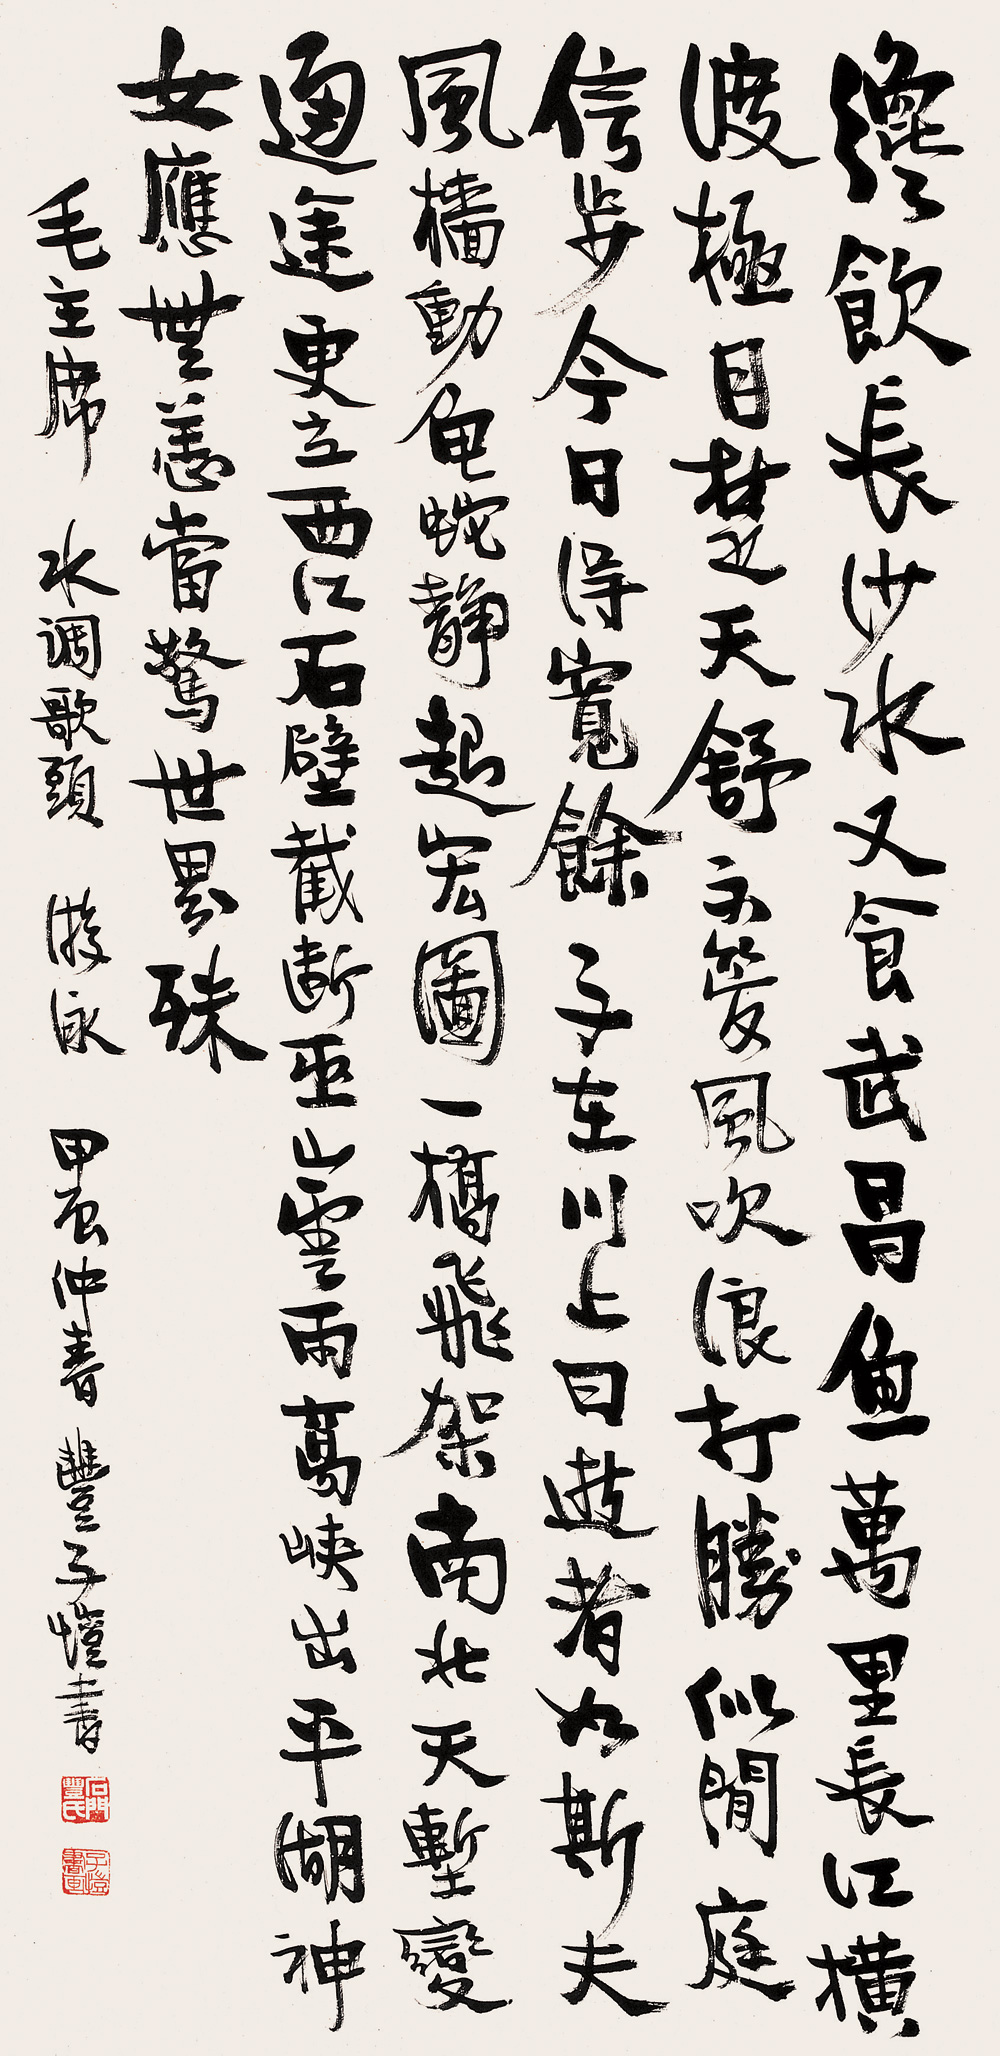 纔飲長沙水又食武昌魚萬里長江橫
渡極目楚天舒不管風吹浪打勝似閒庭
信步今日得寬餘子在川上曰逝者如斯夫
風檣動龜蛇靜起宏圖一橋飛架南北天塹變
通途更立西江石壁截斷巫山雲雨高峽出平湖神
女應無恙當驚世界殊
毛主席 水調歌頭 游泳 甲寅仲春 豐子愷書
石門豐氏
子愷書画